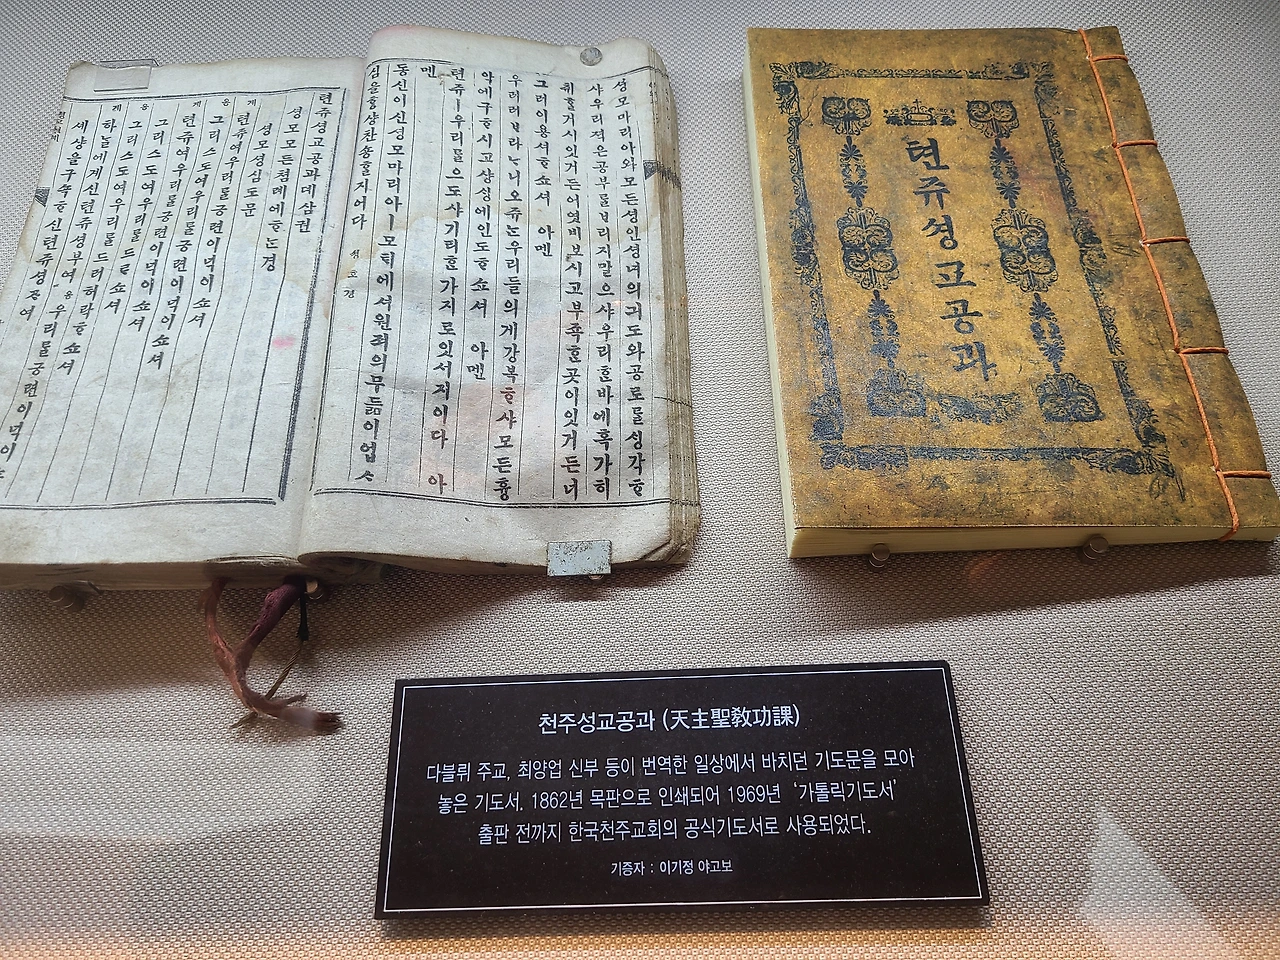 셩모마리아와모든셩인셩녀의긔도와공로를ᄉᆡᆼ각ᄒᆞ
샤우리져은공부를ᄇᆞ리지말으샤우리ᄒᆞᆫ바에혹가히
취ᄒᆞᆯ거시잇거든어엿비보시고부죡ᄒᆞᆫ곳이잇거든너
그러이용셔ᄒᆞ쇼셔 아멘
우러러ᄇᆞ라ᄂᆞ니오쥬ᄂᆞᆫ우리들의게강복ᄒᆞ샤모든흉
악에구ᄒᆞ시고샹ᄉᆡᆼ에인도ᄒᆞ쇼셔 아멘
텬쥬ㅣ우리를으도사기리ᄒᆞᆫ가지로잇서지이다 아
멘
동신이신셩모마리아ㅣ모ᄐᆡ에서원죄의무듦이업ㅅ
심을ᄒᆞᆼ샹찬숑ᄒᆞᆯ지어다
텬쥬셩교공과뎨삼권
셩모모든쳠례에ᄒᆞᄂᆞᆫ경
셩모셩심도문
계 텬쥬여우리를긍련이넉이쇼셔
응 그리스도여우리를긍련이넉이쇼셔
계 텬쥬여우리를긍련이넉이쇼셔
그리스도여우리를드르쇼셔
응 그리스도여우리를드러허락ᄒᆞ쇼셔
계 하ᄂᆞᆯ에계신텬쥬셩부여 응 우리를긍련이넉이쇼셔
세샹을구쇽ᄒᆞ신텬쥬셩ᄌᆞ여
텬쥬셩교공과
천주성교공과 (天主聖敎功課)
다블뤼 주교, 최양업 신부 등이 번역한 일상에서 바치던 기도문을 모아
놓은 기도서. 1862년 목판으로 인쇄되어 1969년 ‘가톨릭기도서’
출판 전까지 한국천주교회의 공식기도서로 사용되었다.
기증자 : 이기정 야고보